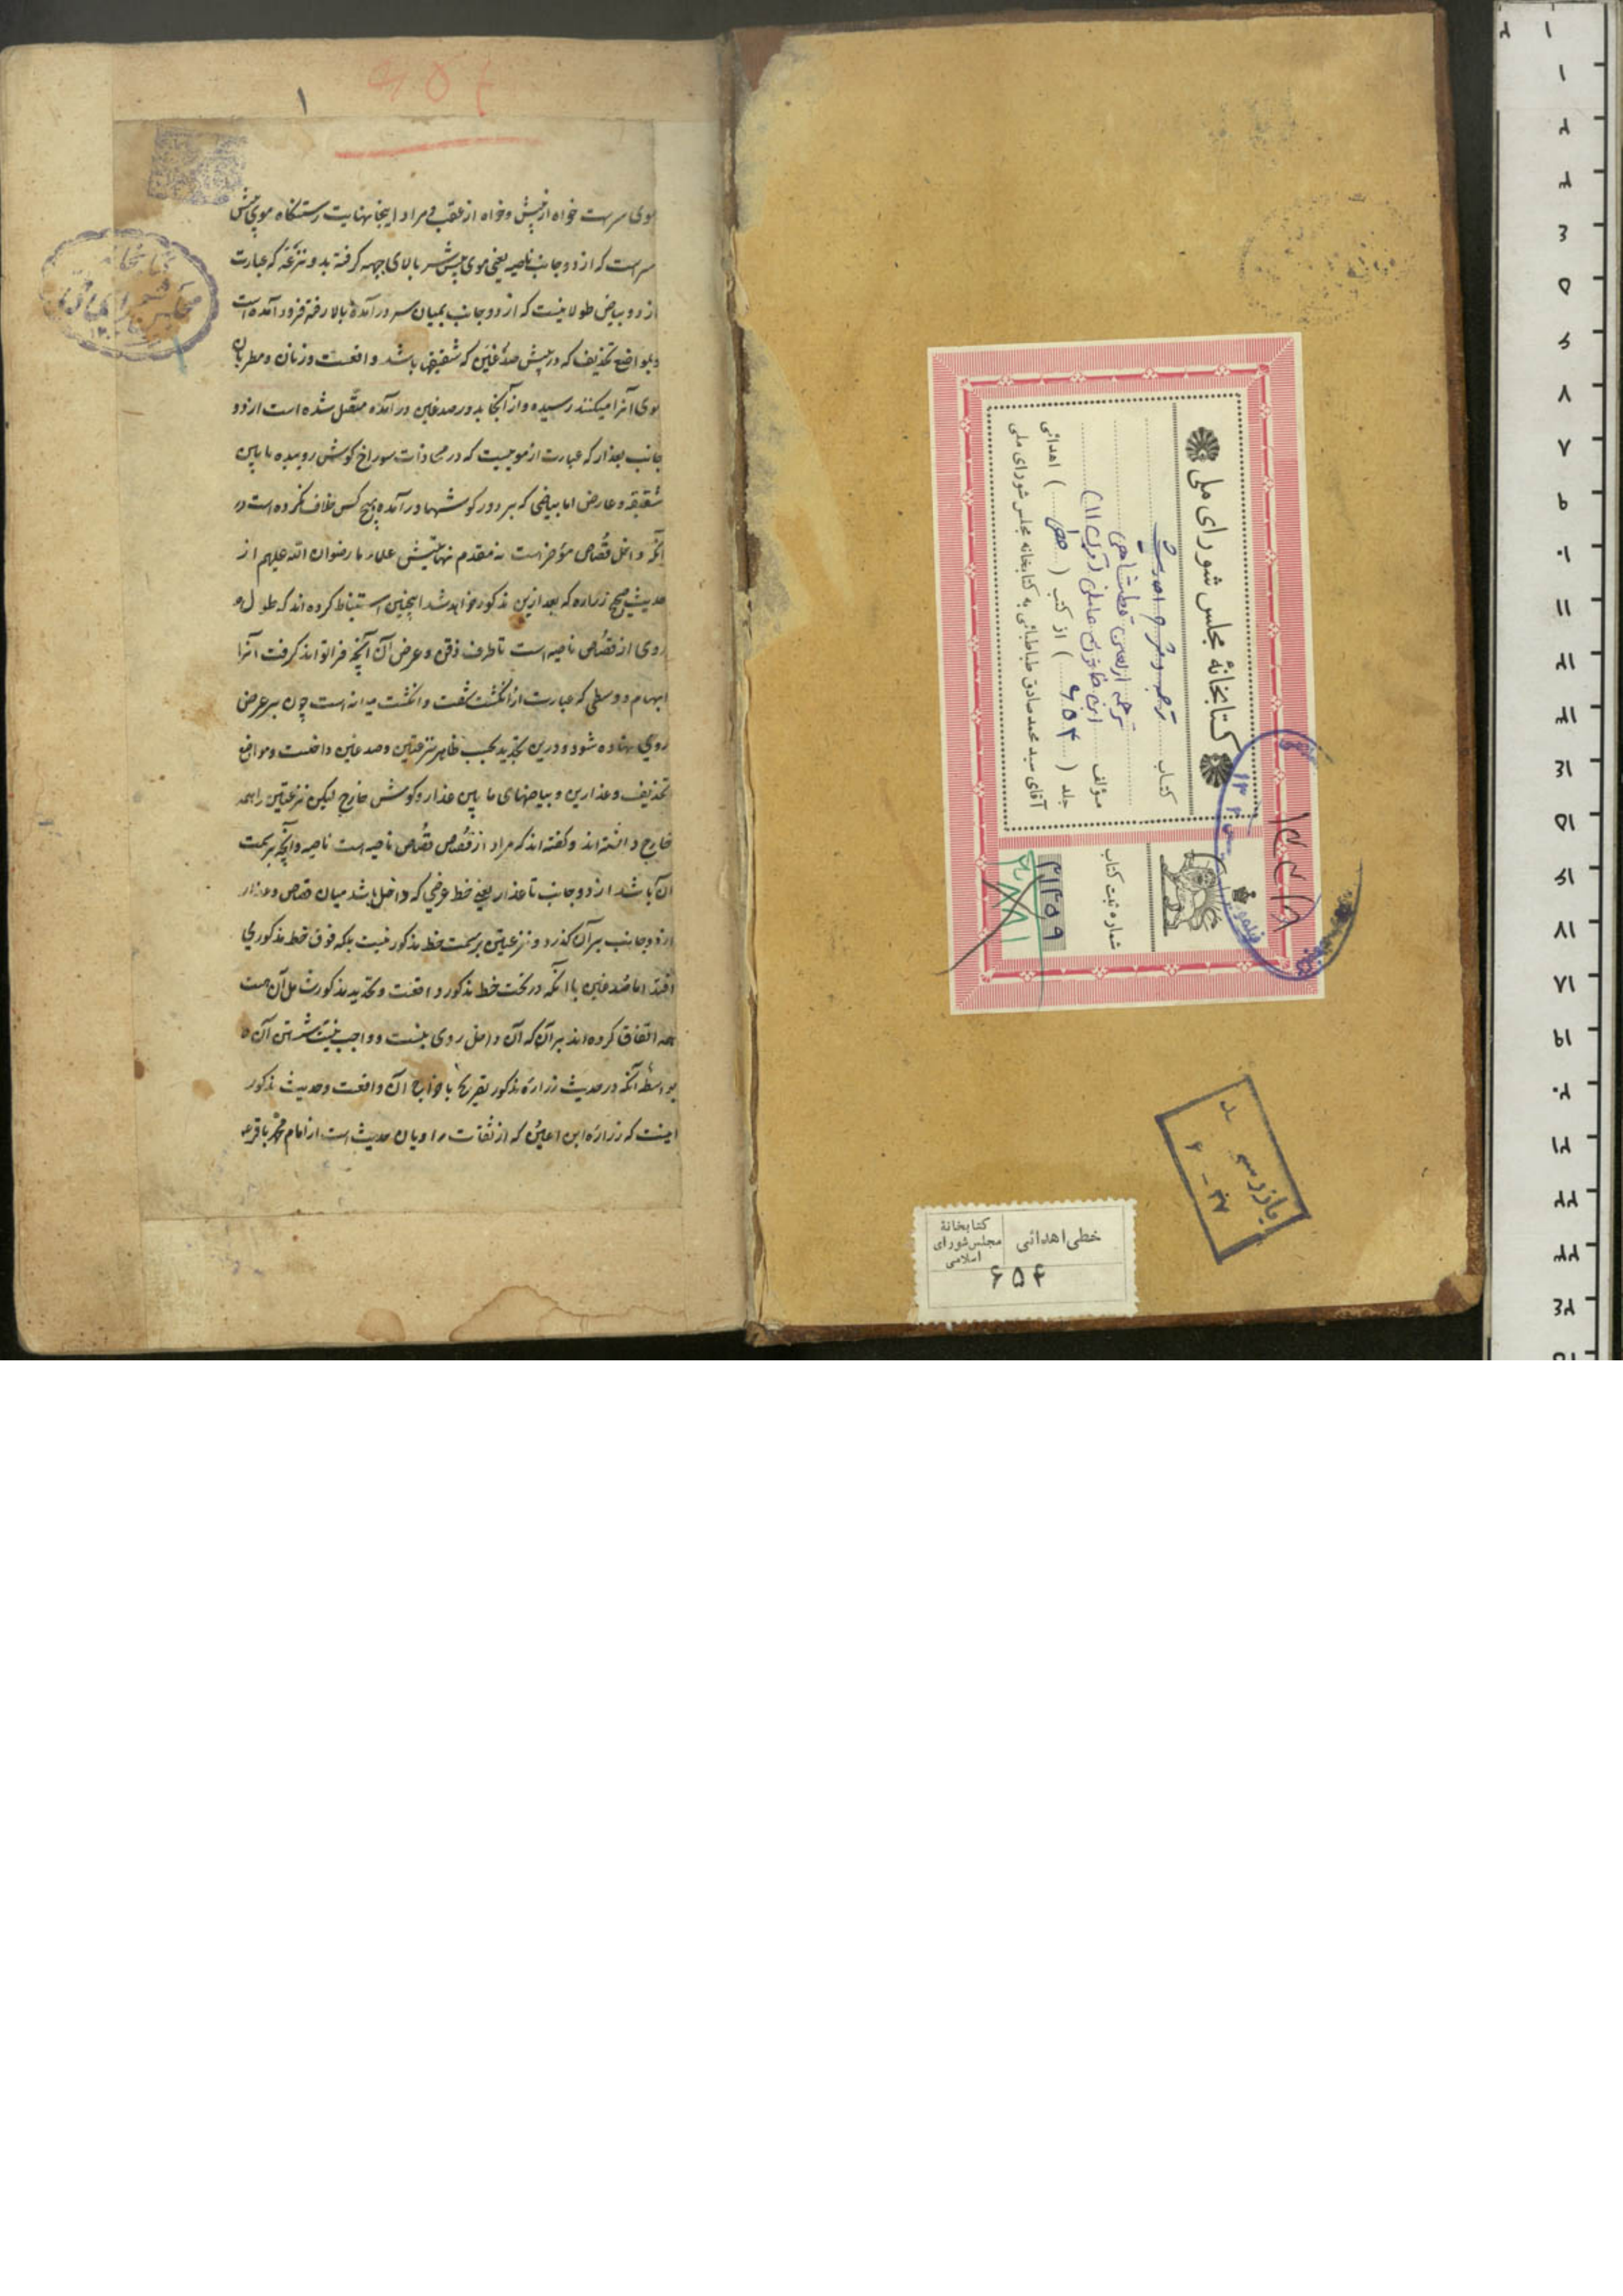 ۶۵۴
۱
موی سرست خواه از پیش و خواه از عقب و مراد اینجا نهایت رستنگاه موی پیش
سرست که از دو جانب ناصیه یعنی موی پیش سر بالای جبهه گرفته بدو نزعه که عبارت
از دو بیاض طولانیست که از دو جانب بمیان سر در آمده بالا رفته فرود آمده است
و بمواضع تحذیف که در پیش صدغین که شقیقین باشد واقعست و زنان و مطربان
موی آنرا میکنند رسیده و از آنجا بدور صدغین در آمده متصل شده است از دو
جانب بعذار که عبارت از موییست که در محاذات سوراخ گوش روییده ما بین
شقیقه و عارض اما بیاضی که بر دور گوشها در آمده هیچ کس خلاف نکرده است در
آنکه داخل قُصاص مؤخرست نه مقدم نهایتش علماء ما رضوان الله علیهم از
حدیث صحیح زراره که بعد ازین مذکور خواهد شد اینچنین استنباط کرده اند که طول
روی از قصاص ناصیه است تا طرف ذقن و عرض آن آنچه فرا تواند گرفت آنرا
ابهام و وسطی که عبارت از انگشت شصت و انگشت میانه است چون بر عرض
روی نهاده شود و درین تحدید بحسب ظاهر نزعتین و صدغین داخلست و مواضع
تحذیف و عذارین و بیاضهای ما بین عذار و گوش خارج لیکن نزعتین را همه
خارج دانسته اند و گفته اند که مراد از قصاص قُصاص ناصیه است ناصیه و آنچه بر سمت
آن باشد از دو جانب تا عذار یعنی خط عرضی که داخل باشد میان قصاص و عذار
از دو جانب بر آن گذرد و نزعتین بر سمت خط مذکور نیست بلکه فوق خط مذکور می
افتد اما صدغین با آنکه در تحت خط مذکور واقعست و تحدید مذکور شامل آن هست
همه اتفاق کرده اند بر آن که آن داخل روی نیست و واجب نیست شستن آن
بواسطه آنکه در حدیث زراره مذکور تصریح باخراج آن واقعست و حدیث مذکور
اینست که زراره ابن اعین که از ثقات راویان حدیث است از امام محمد باقر
کتابخانهٔ مجلس شورای ملی
کتاب
ترجمه اربعین قطبشاهی
مؤلف ابن خاتون عاملی (قرن ۱۱)
جلد ( ۶۵۴ ) از کتب ( خطی ) اهدائی
آقای سید محمد صادق طباطبائی به کتابخانه مجلس شورای ملی
شماره ثبت کتاب
۳۱۳۵۹
۱۳۳۱۸
بازرسی
۳۷ - ۲
خطی اهدائی
کتابخانهٔ
مجلس شورای
اسلامی
۶۵۴
۱
۲
۳
۴
۵
۶
۷
۸
۹
۱۰
۱۱
۱۲
۱۳
۱۴
۱۵
۱۶
۱۷
۱۸
۱۹
۲۰
۲۱
۲۲
۲۳
۲۴